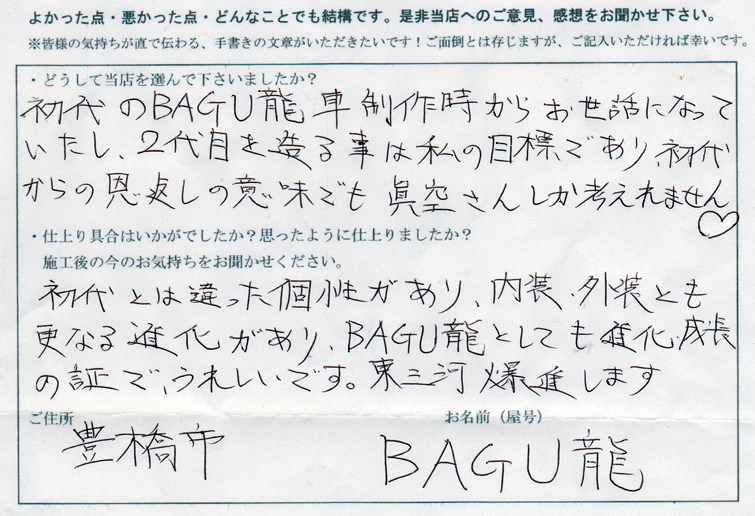 よかった点・悪かった点・どんなことでも結構です。是非当店へのご意見、感想をお聞かせ下さい。
※皆様の気持ちが直で伝わる、手書きの文章がいただきたいです！ご面倒とは存じますが、ご記入いただければ幸いです。
・どうして当店を選んで下さいましたか？
初代のBAGU龍車制作時からお世話になって
いたし、2代目を造る事は私の目標であり、初代
からの恩返しの意味でも眞空さんしか考えれません♡
・仕上り具合はいかがでしたか？思ったように仕上りましたか？
施工後の今のお気持ちをお聞かせください。
初代とは違った個性があり、内装・外装とも
更なる進化があり、BAGU龍としても進化、成長
の証で、うれしいです。東三河爆進します
ご住所
お名前（屋号）
豊橋市
BAGU龍